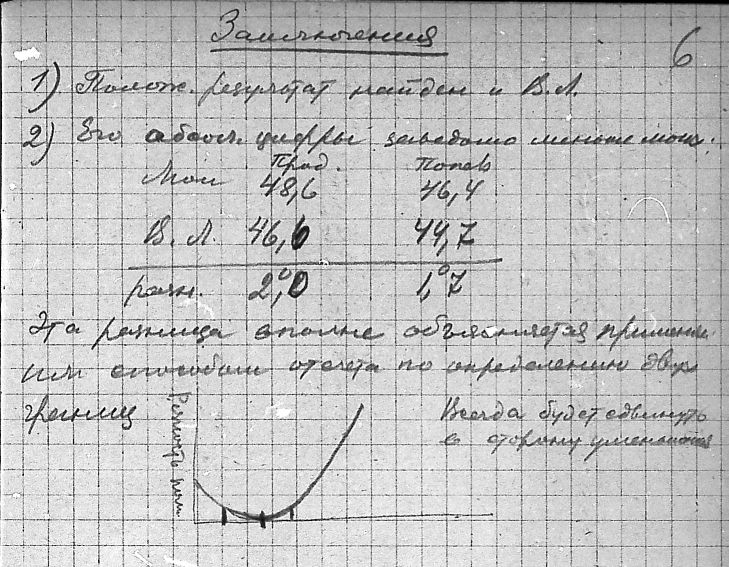 Заключения
6
1) Полож. результат найден и В.Л.
2) Его абсол. цифры заведомо меньше моих:
Прод. Попер
Мои 48,6 46,4
В.Л. 46,6 44,7
разн. 2,°0 1,°7
Эта разница вполне объясняется применен.
им способом отсчета по определению двух
границ
Всегда будет сдвинуть
в сторону уменьшения
Резкость